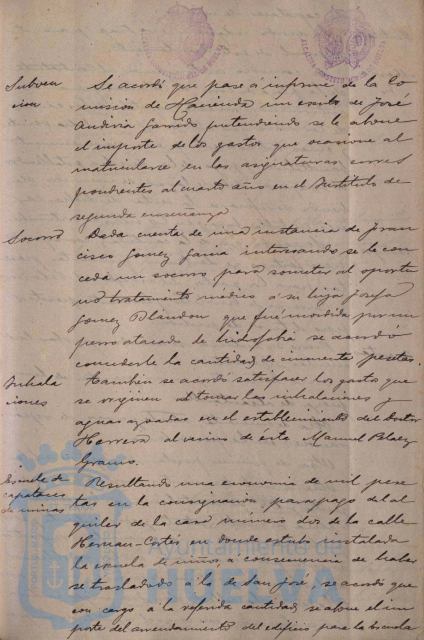 Subven
cion
Se acordó que pase á informe de la Co
misión de Hacienda un escrito de José
Garrido pretendiendo se le abone
el importe de los gastos que ocasione al
matricularse en las asignaturas corres
pondientes al cuarto año en el Instituto de
segunda enseñanza
Socorro
Dada cuenta de una instancia de Fran
cisco Gomez Garcia interesando se le con
ceda un socorro para someter al oportu
no tratamiento médico á su hija Josefa
Gomez Blandon que fué mordida por un
perro atacado de hidrofobia se acordó
concederle la cantidad de cincuenta pesetas.
Inhala
ciones
Tambien se acordó satisfacer los gastos que
se originen al tomar las inhalaciones y
aguas azoadas en el establecimiento del Doctor
Herrera al vecino de ésta Manuel Blaez
Escuela de
capataces
de minas
Resultando una economia de mil pese
tas en la consignación para pago del al
quiler de la casa número dos de la calle
Hernan-Cortés en donde estubo instalada
la escuela de niños, á consecuencia de haber
se trasladado á la de San José se acordó que
con cargo á la referida cantidad se abone el im
porte del arrendamiento del edificio para la Escuela
Ayuntamiento de
HUELVA